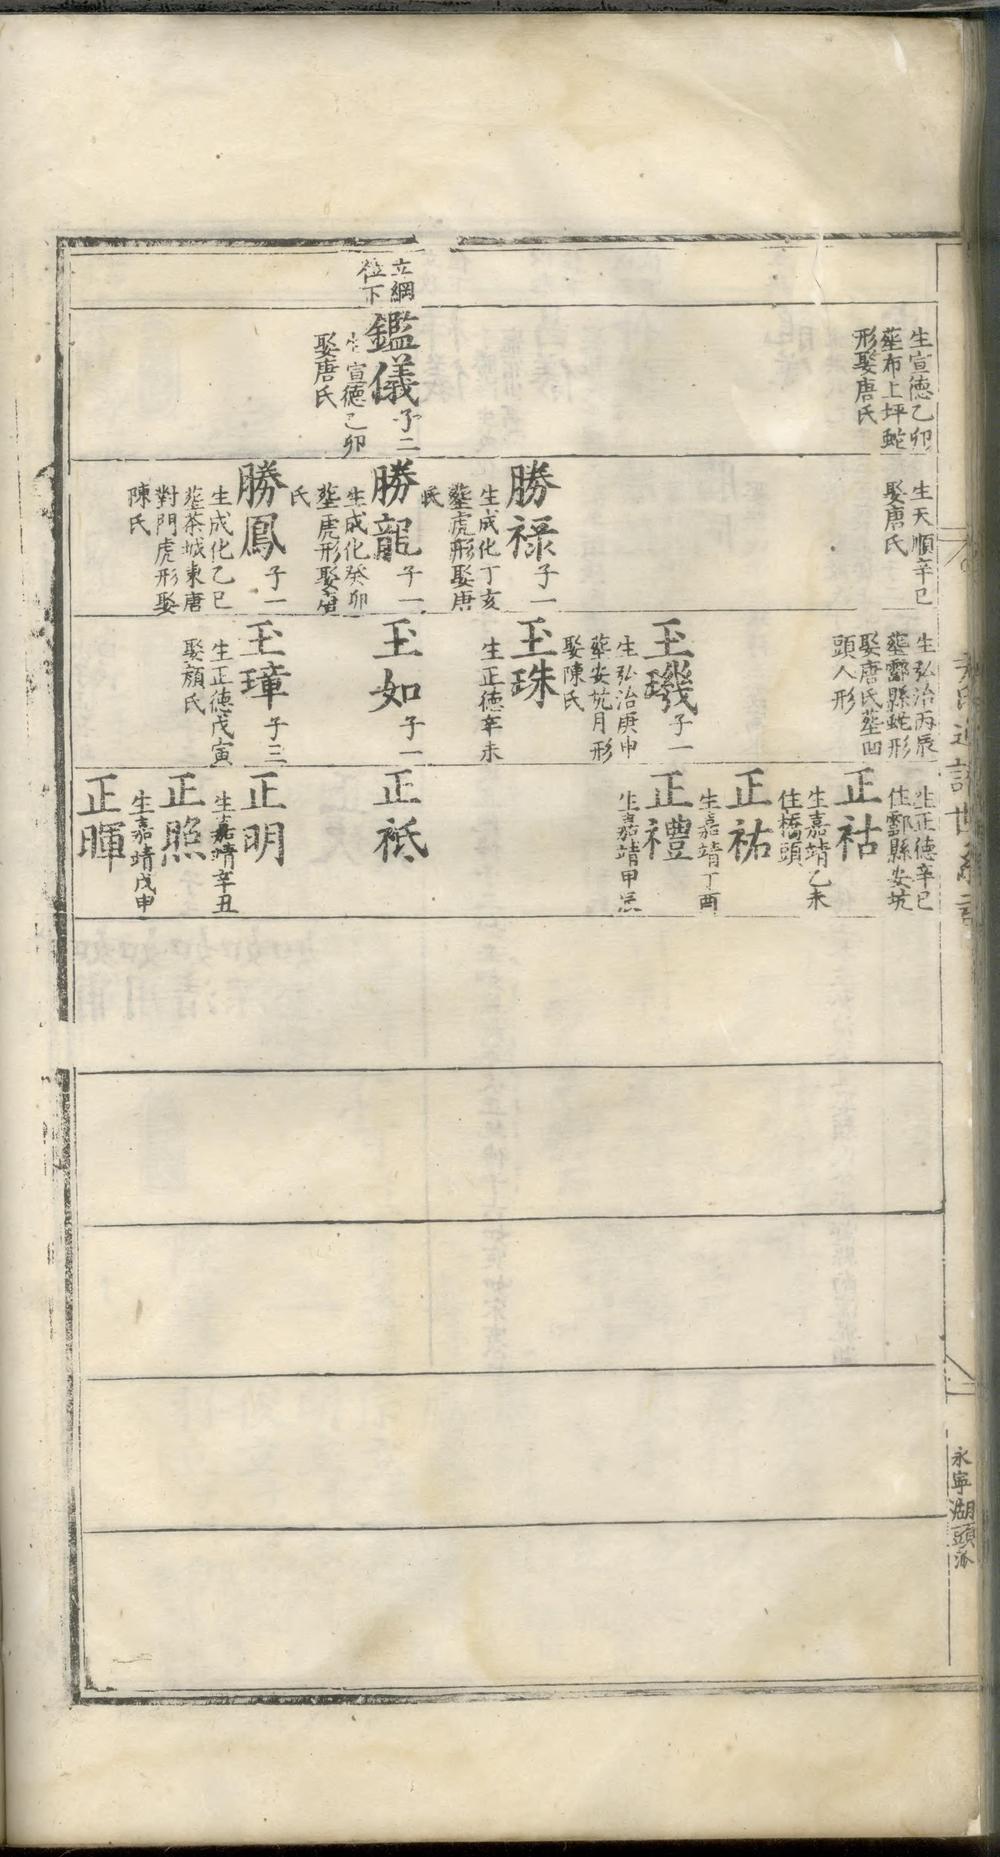 立綱
位下
鑑儀子二
生宣德己卯
娶唐氏
生宣德乙卯
塟布上坪蛇
形娶唐氏
生天順辛巳
娶唐氏
勝祿子一
生成化丁亥
塟虎形娶唐
氏
勝龍子一
生成化癸卯
塟虎形娶唐
氏
勝鳳子一
生成化乙巳
塟茶城東唐
對門虎形娶
陳氏
生弘治丙辰
塟酃縣蛇形
娶唐氏塟凹
頭人形
玉璣子一
生弘治庚申
塟安坑月形
娶陳氏
玉珠
生正德辛未
玉如子一
玉璋子三
生正德戊寅
娶顏氏
生正德辛巳
住酃縣安坑
正祜
生嘉靖乙未
住橋頭
正祐
生嘉靖丁酉
正禮
生嘉靖甲辰
正祗
正明
生嘉靖辛丑
正照
生嘉靖戊申
正暉
永寧湖頭派